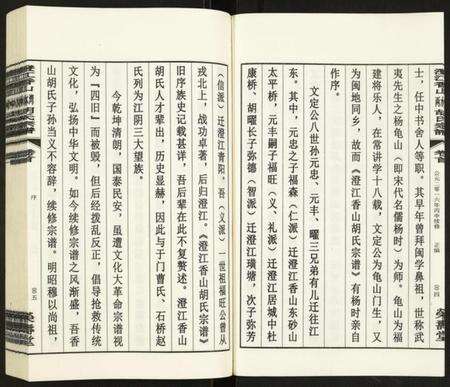 士，任中书舍人等职。其早年曾拜闽学鼻祖，世称武
夷先生之杨龟山（即宋代名儒杨时）为师。龟山为福
建将乐人，在常讲学十八载，文定公为龟山门生，又
为闽地同乡，故而《澄江香山胡氏宗谱》有杨时亲自
作序。
文定公八世孙元忠、元丰、曜三兄弟有儿迁往江
东。其中，元忠之子福森（仁派）迁澄江香山东砂山
太平桥，元丰嗣子福旺（义、礼派）迁澄江居城中杜
康桥、胡曜长子弥德（智派）迁澄江璜塘，次子弥芳
公元二零一六年丙申续修
正编
荣寿堂
澄江香山胡氏宗谱
序
荣寿堂
（信派）迁澄江青阳。吾（义派）一世祖福旺公曾从
戎北上，战功卓著，后归澄江。《澄江香山胡氏宗谱》
旧序族史记载甚详，吾后辈在此不复赘述。澄江香山
胡氏人才辈出，历史显赫，因此与于门曹氏、石桥赵
氏列为江阴三大望族。
今乾坤清朗，国泰民安，虽遭文化大革命宗谱视
为『四旧』而被毁，但后经拨乱反正，倡导抢救传统
文化，弘扬中华文明。如今续修宗谱之风渐盛，吾香
山胡氏子孙当义不容辞，续修宗谱。明昭穆以尚祖，